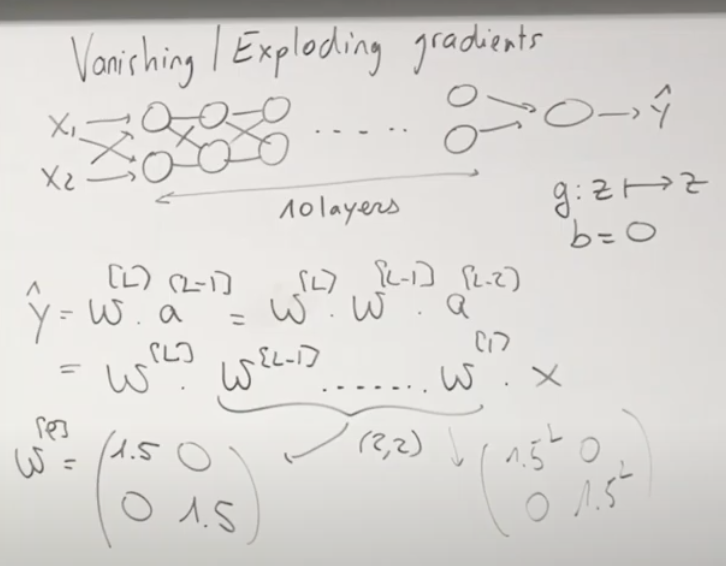 Vanishing / Exploding gradients
X₁
X₂
. . . . . .
Ŷ
10 layers
g: z ↦ z
b = 0
Ŷ = W^[L] . a^[L-1] = W^[L] . W^[L-1] . a^[L-2]
= W^[L] . W^[L-1] ....... W^[1] . X
(2,2)
W^[l] = (1.5 0
0 1.5)
(1.5^L 0
0 1.5^L)